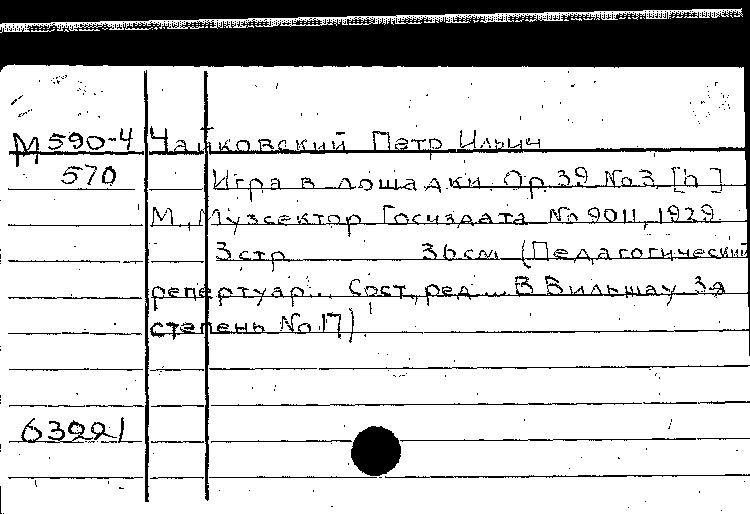 М 590-4 Чайковский Петр Ильич
570 Игра в лошадки. Ор. 39 No 3 [h]
М., Музсектор Госиздата No 9011, 1929
3 стр 36 см (Педагогический
репертуар... Сост., ред... В Вильшау 3я
степень No 17).
63221